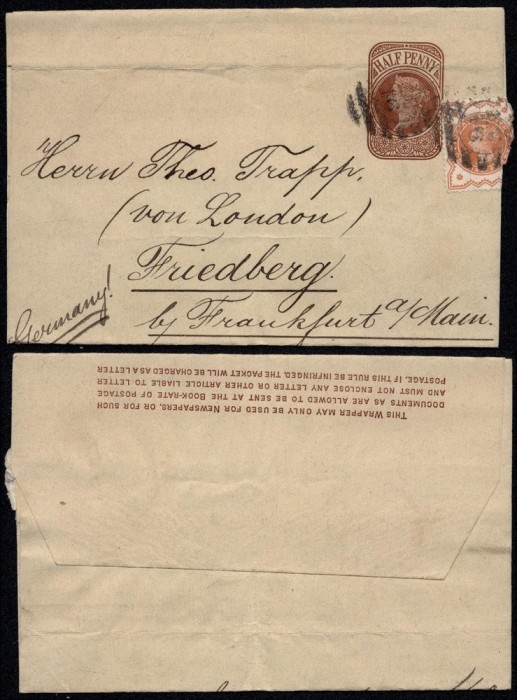 HALF PENNY
Herrn Theo. Trapp.
(von London)
Friedberg.
by Frankfurt a/Main.
Germany!
THIS WRAPPER MAY ONLY BE USED FOR NEWSPAPERS, OR FOR SUCH
DOCUMENTS AS ARE ALLOWED TO BE SENT AT THE BOOK-RATE OF POSTAGE
AND MUST NOT ENCLOSE ANY LETTER OR OTHER ARTICLE LIABLE TO LETTER
POSTAGE. IF THIS RULE BE INFRINGED, THE PACKET WILL BE CHARGED AS A LETTER